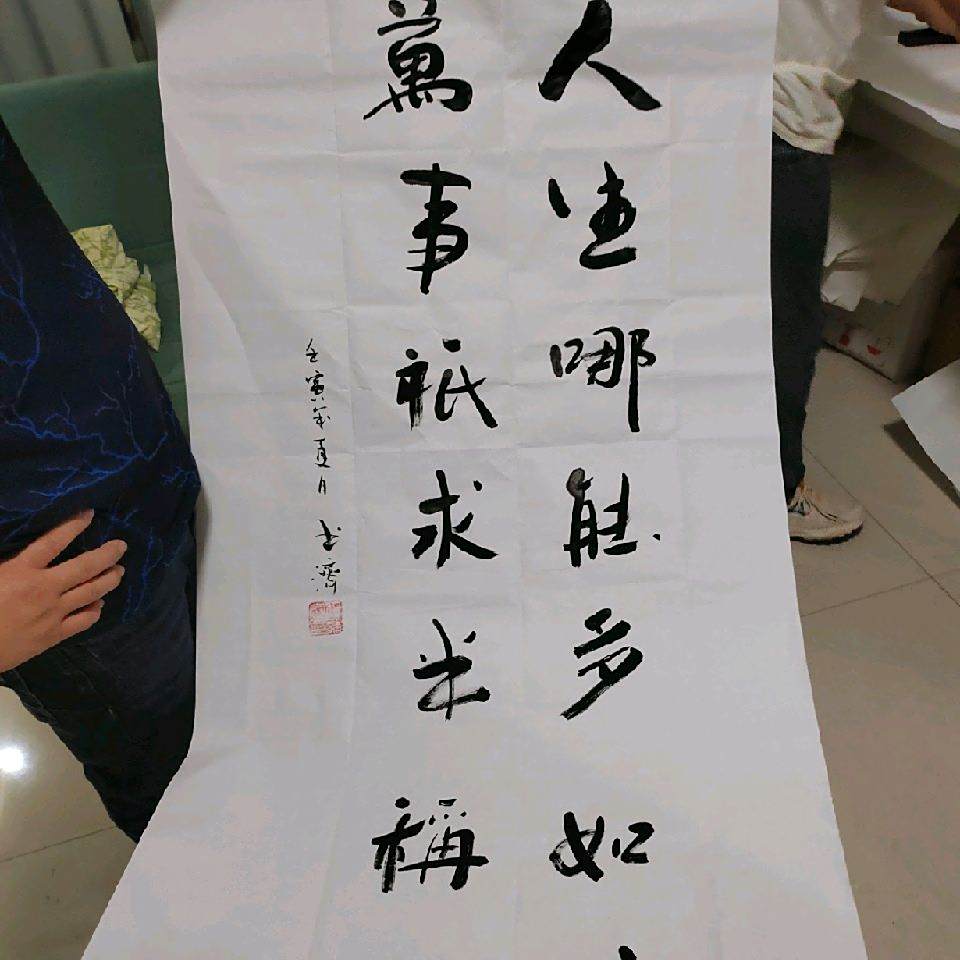 人生哪能多如
萬事祇求半稱
壬寅年夏月 濟